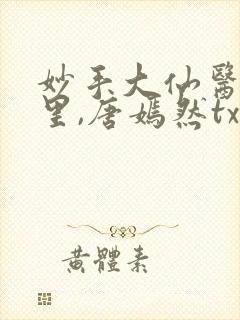 妙手大仙醫
里,唐嫣然tx
黃體素